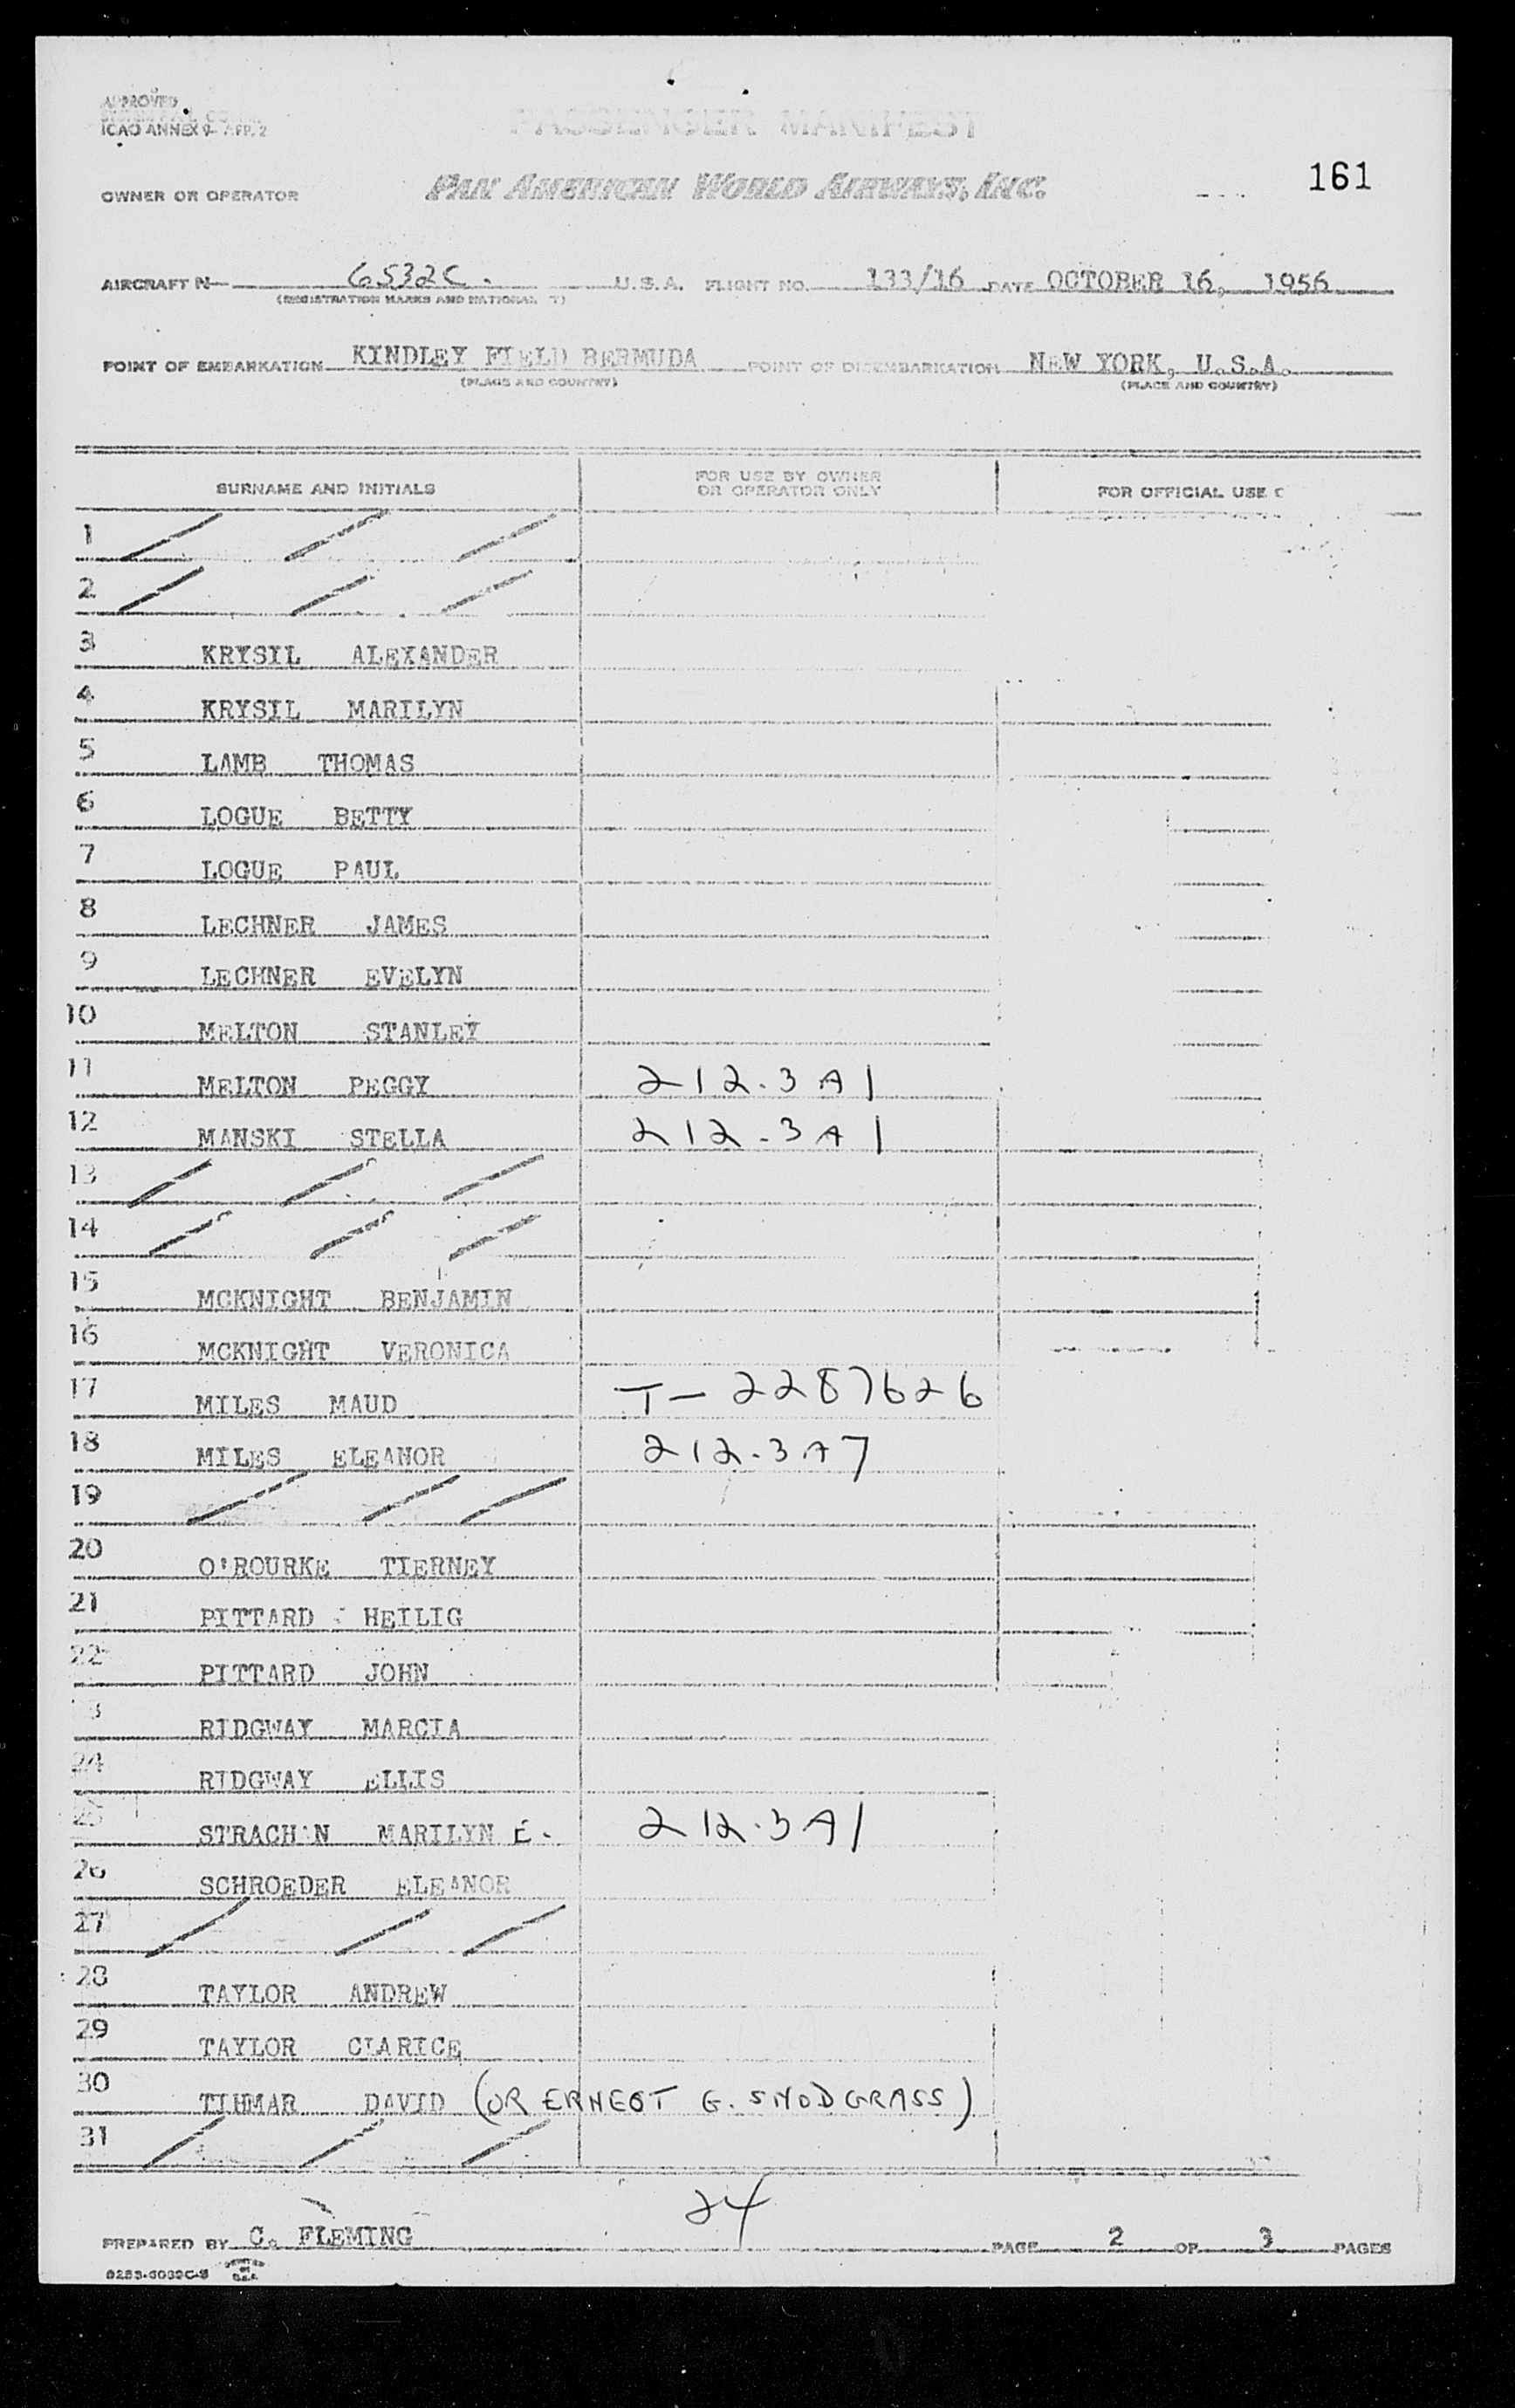 APPROVED
ICAO ANNEX 9- APP. 2
PASSENGER MANIFEST
OWNER OR OPERATOR PAN AMERICAN WORLD AIRWAYS, INC. 161
AIRCRAFT N 6532C. U.S.A. FLIGHT NO. 133/16 DATE OCTOBER 16, 1956
(REGISTRATION MARKS AND NATIONAL Y)
POINT OF EMBARKATION KINDLEY FIELD BERMUDA POINT OF DISEMBARKATION NEW YORK, U.S.A.
(PLACE AND COUNTRY) (PLACE AND COUNTRY)
SURNAME AND INITIALS FOR USE BY OWNER OR OPERATOR ONLY FOR OFFICIAL USE
1 / / /
2 / / /
3 KRYSIL ALEXANDER
4 KRYSIL MARILYN
5 LAMB THOMAS
6 LOGUE BETTY
7 LOGUE PAUL
8 LECHNER JAMES
9 LECHNER EVELYN
10 MELTON STANLEY
11 MELTON PEGGY 212.3 A1
12 MANSKI STELLA 212-3A1
13 / / /
14 / / /
15 MCKNIGHT BENJAMIN
16 MCKNIGHT VERONICA
17 MILES MAUD T-2287626
18 MILES ELEANOR 212.3A7
19 / / /
20 O'ROURKE TIERNEY
21 PITTARD HEILIG
22 PITTARD JOHN
3 RIDGWAY MARCIA
24 RIDGWAY ELLIS
25 STRACHAN MARILYN E. 212.3A1
26 SCHROEDER ELEANOR
27 / / /
28 TAYLOR ANDREW
29 TAYLOR CLARICE
30 TIHMAR DAVID (OR ERNEST G. SNODGRASS)
31 / / /
24
PREPARED BY C. FLEMING PAGE 2 OF 3 PAGES